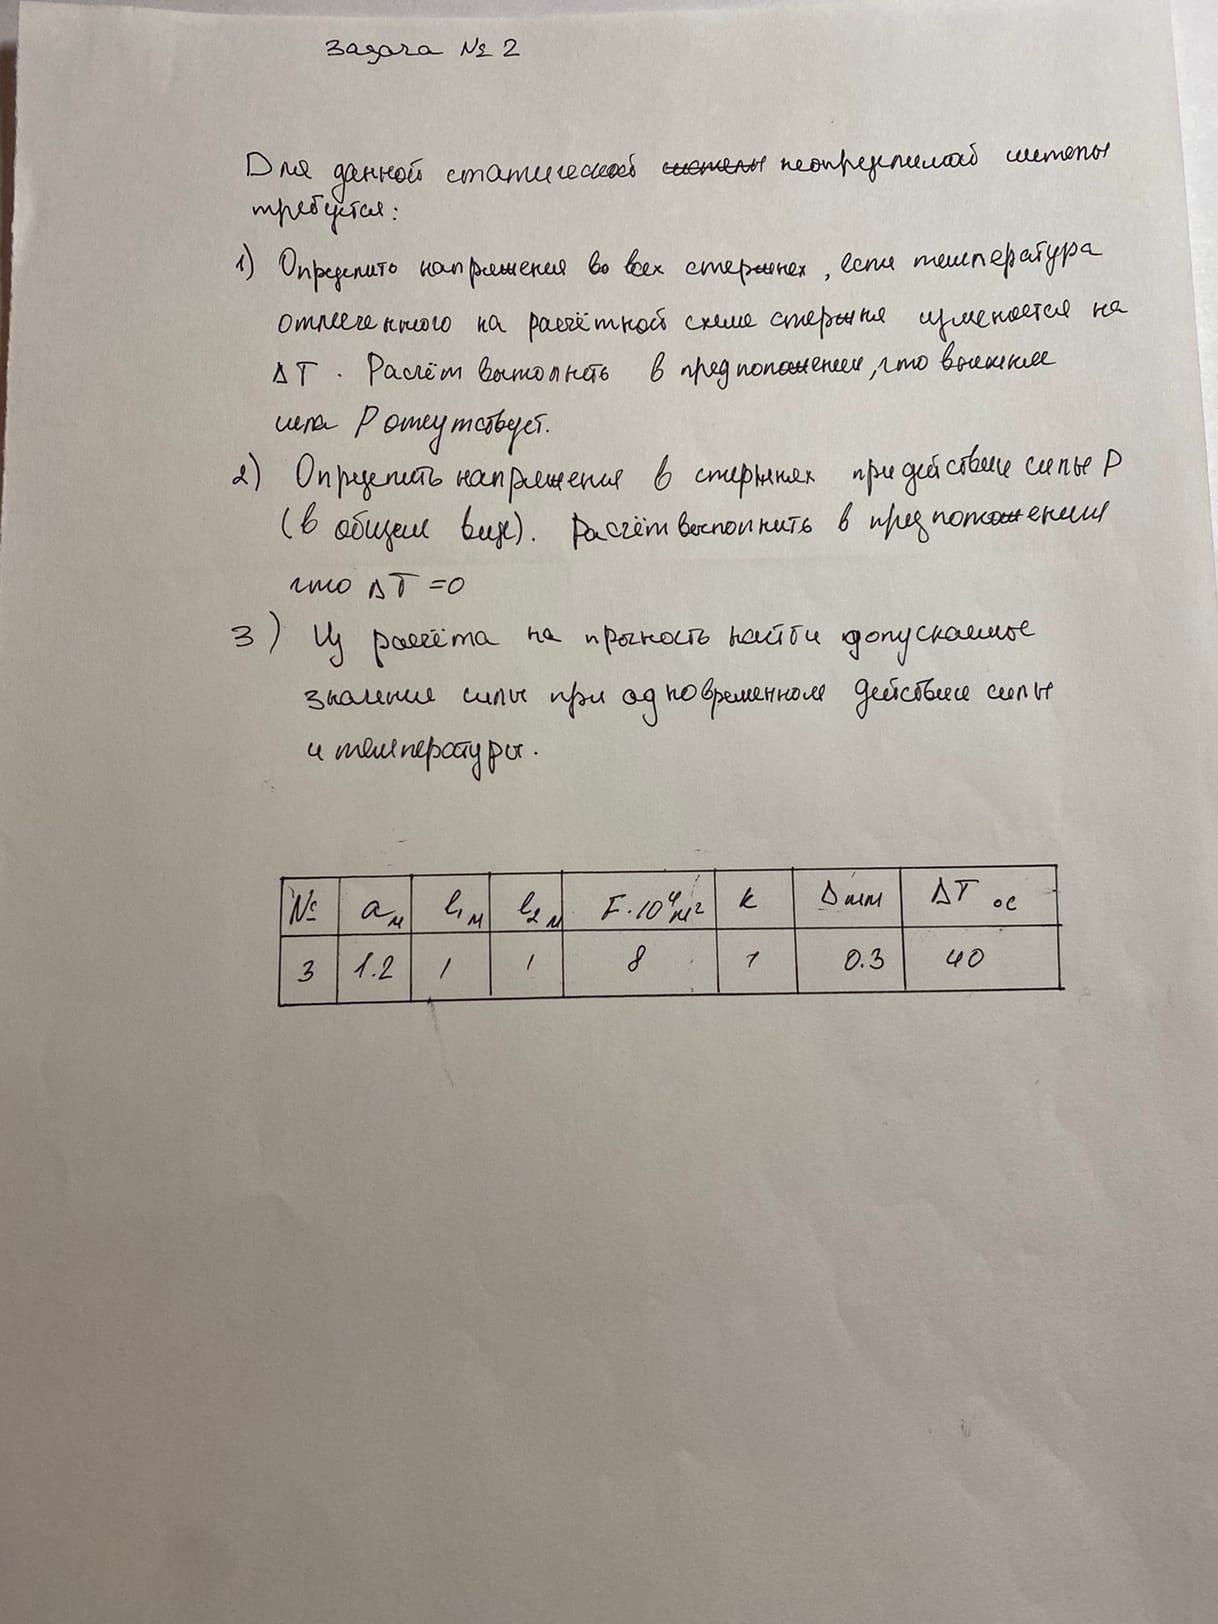 Задача № 2
Для данной статической системы неопределимой системы
требуется:
1) Определить напряжения во всех стержнях, если температура
отмеченного на расчётной схеме стержня изменяется на
ΔT. Расчёт выполнить в предположении, что внешняя
сила P отсутствует.
2) Определить напряжения в стержнях при действие силы P
(в общем виде). Расчёт выполнить в предположении
что ΔT = 0
3) Из расчёта на прочность найти допускаемые
значение силы при одновременном действие силы
и температуры.
№ a м l₁ м l₂ м F·10⁴ м² k Δ мм ΔT °C
3 1.2 1 1 8 1 0.3 40